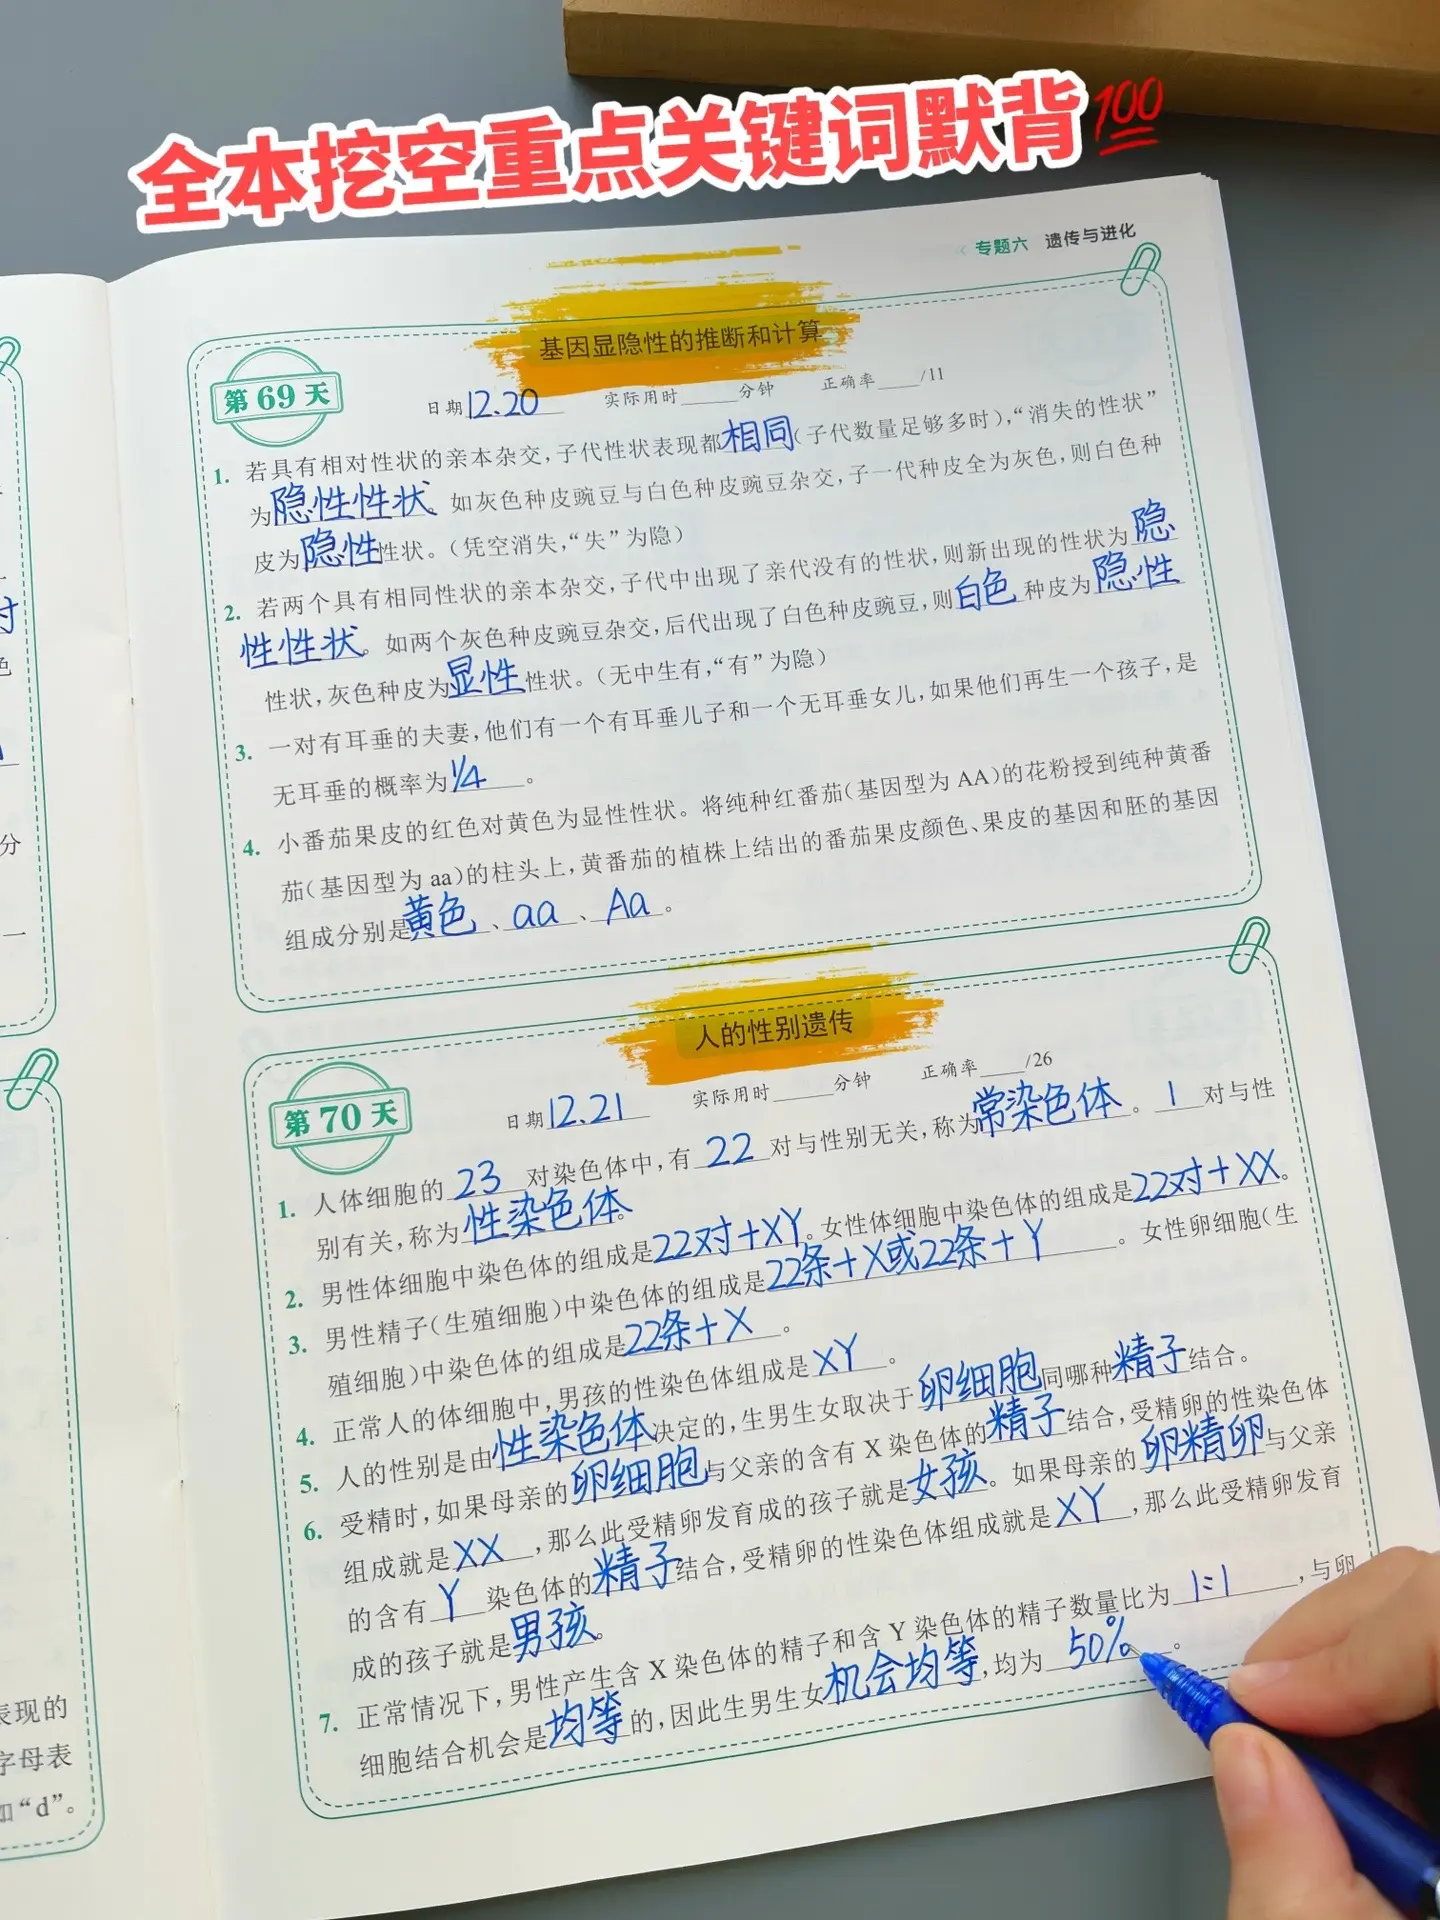 全本挖空重点关键词默背💯
专题六 遗传与进化
基因显隐性的推断和计算
第69天
日期12.20 实际用时____分钟 正确率____/11
1. 若具有相对性状的亲本杂交，子代性状表现都相同（子代数量足够多时），“消失的性状”
为隐性性状。如灰色种皮豌豆与白色种皮豌豆杂交，子一代种皮全为灰色，则白色种
皮为隐性性状。（凭空消失，“失”为隐）
2. 若两个具有相同性状的亲本杂交，子代中出现了亲代没有的性状，则新出现的性状为隐
性性状。如两个灰色种皮豌豆杂交，后代出现了白色种皮豌豆，则白色种皮为隐性
性状，灰色种皮为显性性状。（无中生有，“有”为隐）
3. 一对有耳垂的夫妻，他们有一个有耳垂儿子和一个无耳垂女儿，如果他们再生一个孩子，是
无耳垂的概率为1/4。
4. 小番茄果皮的红色对黄色为显性性状。将纯种红番茄（基因型为 AA）的花粉授到纯种黄番
茄（基因型为 aa）的柱头上，黄番茄的植株上结出的番茄果皮颜色、果皮的基因和胚的基因
组成分别是黄色、aa、Aa。
人的性别遗传
第70天
日期12.21 实际用时____分钟 正确率____/26
1. 人体细胞的23对染色体中，有22对与性别无关，称为常染色体。1对与性
别有关，称为性染色体。
2. 男性体细胞中染色体的组成是22对+XY。女性体细胞中染色体的组成是22对+XX。
3. 男性精子（生殖细胞）中染色体的组成是22条+X或22条+Y。女性卵细胞（生
殖细胞）中染色体的组成是22条+X。
4. 正常人的体细胞中，男孩的性染色体组成是XY。
5. 人的性别是由性染色体决定的，生男生女取决于卵细胞同哪种精子结合。
6. 受精时，如果母亲的卵细胞与父亲的含有 X 染色体的精子结合，受精卵的性染色体
组成就是XX，那么此受精卵发育成的孩子就是女孩。如果母亲的卵精卵与父亲
的含有Y染色体的精子结合，受精卵的性染色体组成就是XY，那么此受精卵发育
成的孩子就是男孩。
7. 正常情况下，男性产生含 X 染色体的精子和含 Y 染色体的精子数量比为1:1，与卵
细胞结合机会是均等的，因此生男生女机会均等，均为50%。
对
色
分
一
表现的
字母表
如“d”。